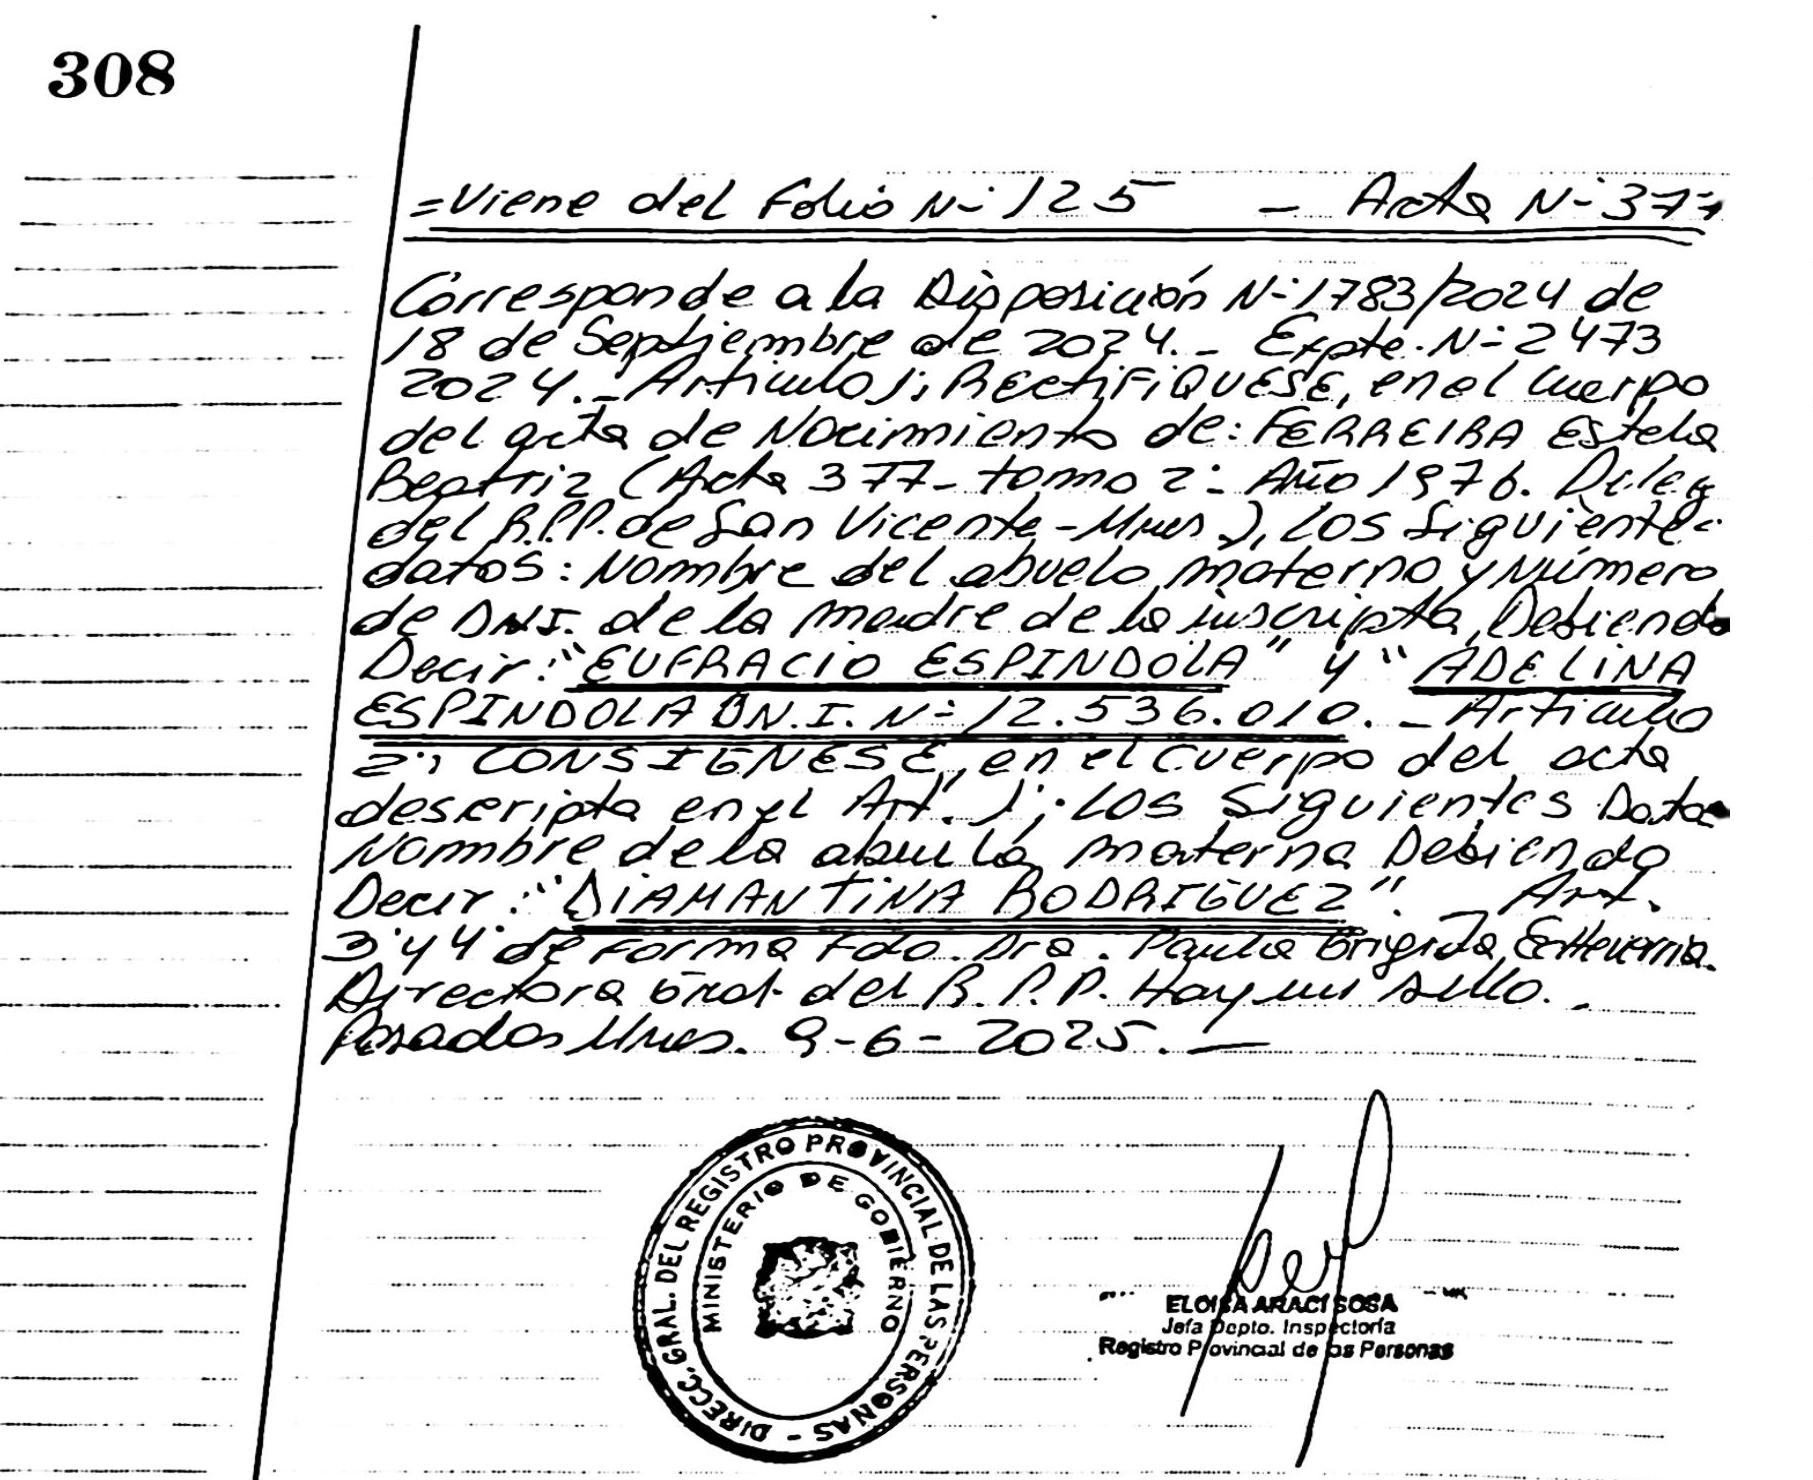 308
=Viene del Folio N- 125 - Acta N- 377
Corresponde a la Disposición N- 1783/2024 de
18 de Septiembre de 2024.- Expte. N- 2473
2024.- Articulo 1; RECtiFiQUESE, en el Cuerpo
del acta de Nacimiento de: FERREIRA Estela
Beatriz (Acta 377- tomo 2- Año 1976. Deleg
del R.P.P. de San Vicente - Mnes), LOS Siguientes
datos: Nombre del abuelo materno y Número
de DNI. de la madre de la inscripta, Debiendo
Decir: "EUFRACIO ESPINDOLA" y "ADELINA
ESPINDOLA DN.I. N- 12.536.010.- Articulo
2; CONSIGNESE, en el Cuerpo del acta
descripta en el Art. 1; Los Siguientes Datos
Nombre de la abuela materna Debiendo
Decir: "DIAMANTINA RODRIGUEZ". Art.
3 y 4 de Forma Fdo. Dra. Paula Brigida Echeverria.
Directora Gral. del R.P.P. Hay un sello.
Posadas Mnes. 9-6-2025.-
DIRECC. GRAL. DEL REGISTRO PROVINCIAL DE LAS PERSONAS -
MINISTERIO DE GOBIERNO
ELOISA ARACI SOSA
Jefa Depto. Inspectoría
Registro Provincial de las Personas